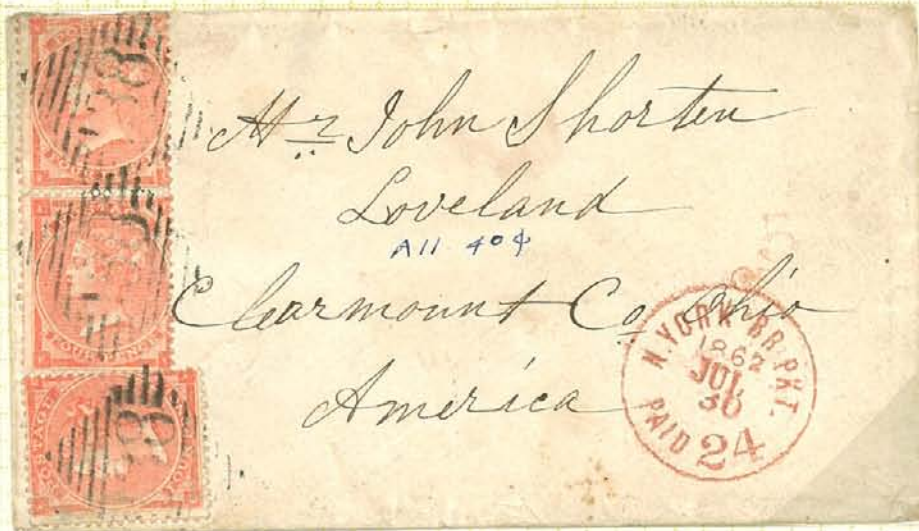 Mr John Shorten
Loveland
All 40¢
Clearmount Co Ohio
America
N. YORK BR. PKT.
1862
JUL
30
PAID 24
FOUR PENCE